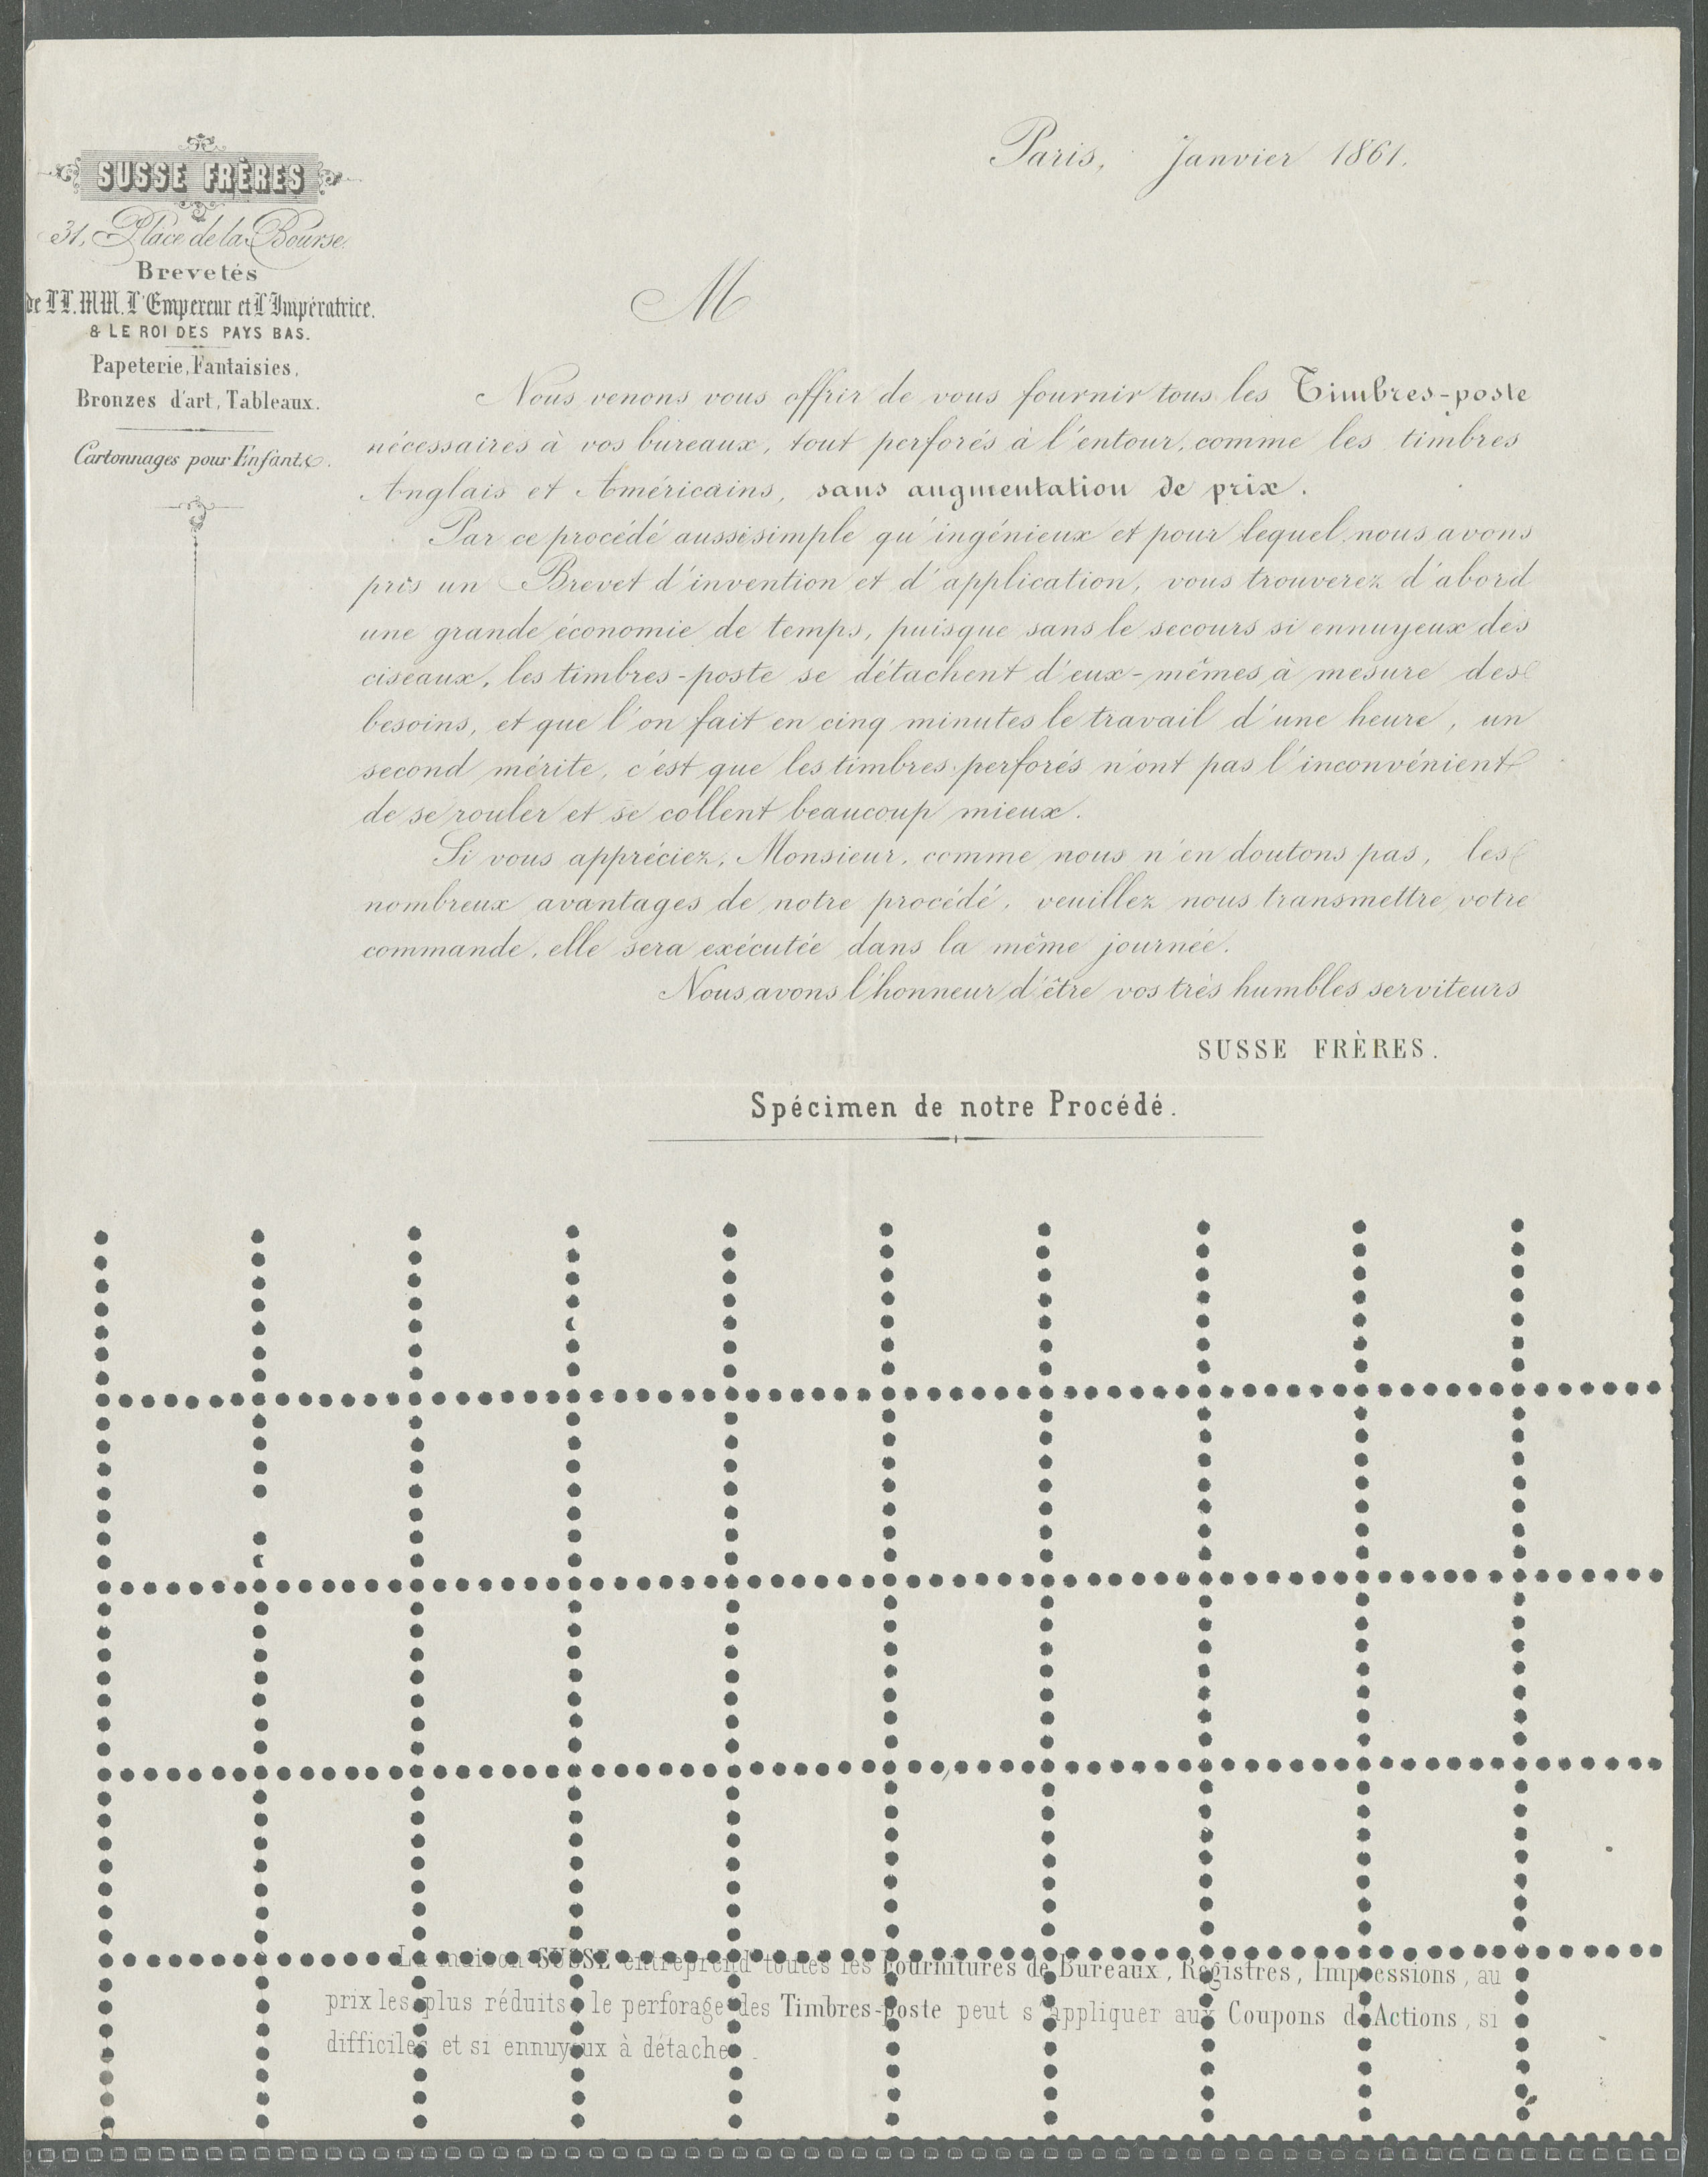 SUSSE FRÈRES
31, Place de la Bourse.
Brevetés
de LL. MM. L'Empereur et L'Impératrice.
& LE ROI DES PAYS BAS.
Papeterie, Fantaisies,
Bronzes d'art, Tableaux.
Cartonnages pour Enfants.
Paris, Janvier 1861.
M
Nous venons vous offrir de vous fournir tous les Timbres-poste
nécessaires à vos bureaux, tout perforés à l'entour, comme les timbres
Anglais et Américains, sans augmentation de prix.
Par ce procédé aussi simple qu'ingénieux et pour lequel nous avons
pris un Brevet d'invention et d'application, vous trouverez d'abord
une grande économie de temps, puisque sans le secours si ennuyeux des
ciseaux, les timbres-poste se détachent d'eux-mêmes à mesure des
besoins, et que l'on fait en cinq minutes le travail d'une heure, un
second mérite, c'est que les timbres perforés n'ont pas l'inconvénient
de se rouler et se collent beaucoup mieux.
Si vous appréciez, Monsieur, comme nous n'en doutons pas, les
nombreux avantages de notre procédé, veuillez nous transmettre votre
commande, elle sera exécutée dans la même journée.
Nous avons l'honneur d'être vos très humbles serviteurs
SUSSE FRÈRES.
Spécimen de notre Procédé.
La maison SUSSE entreprend toutes les Fournitures de Bureaux, Registres, Impressions, au
prix les plus réduits, le perforage des Timbres-poste peut s'appliquer aux Coupons d'Actions, si
difficiles et si ennuyeux à détacher.